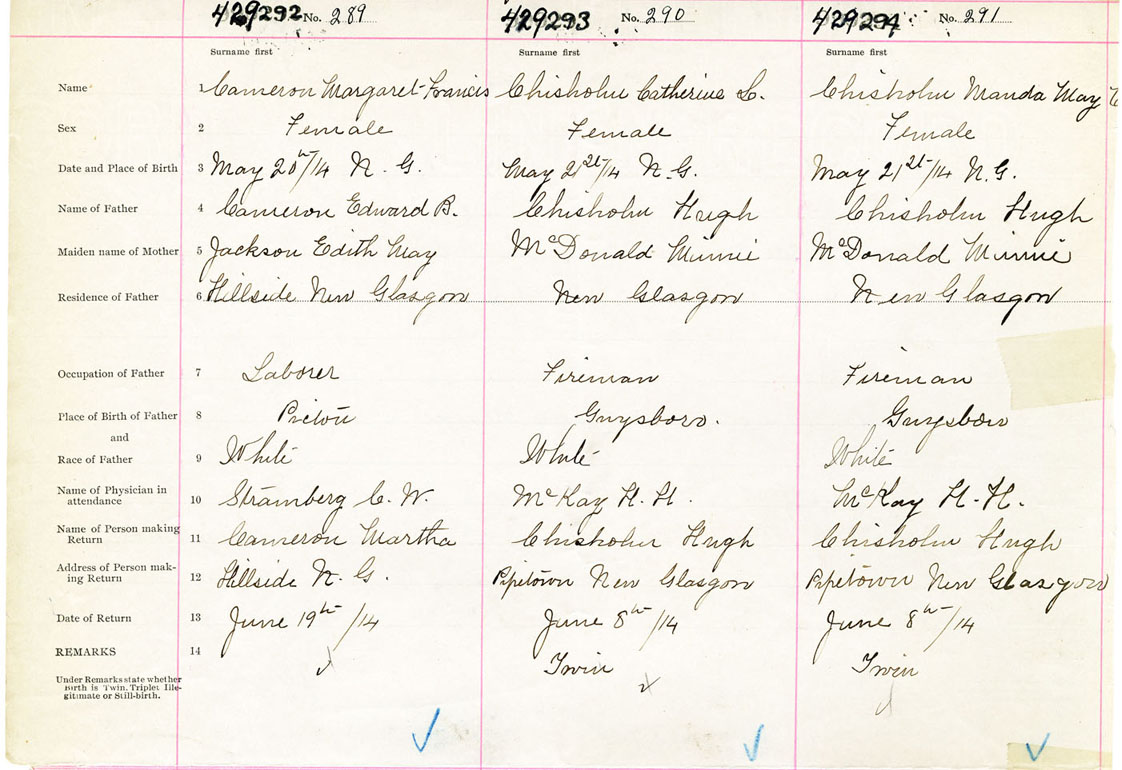 429292 No. 289 429293 No. 290 429294 No. 291
Surname first Surname first Surname first
Name 1 Cameron Margaret Francis Chisholm Catherine L. Chisholm Manda May
Sex 2 Female Female Female
Date and Place of Birth 3 May 20th/14 N. G. May 21st/14 N. G. May 21st/14 N. G.
Name of Father 4 Cameron Edward B. Chisholm Hugh Chisholm Hugh
Maiden name of Mother 5 Jackson Edith May McDonald Minnie McDonald Minnie
Residence of Father 6 Hillside New Glasgow New Glasgow New Glasgow
Occupation of Father 7 Laborer Fireman Fireman
Place of Birth of Father 8 Pictou Guysboro. Guysboro
and
Race of Father 9 White White White
Name of Physician in
attendance 10 Stramberg C. W. McKay H. H. McKay H. H.
Name of Person making
Return 11 Cameron Martha Chisholm Hugh Chisholm Hugh
Address of Person mak-
ing Return 12 Hillside N. G. Pipetown New Glasgow Pipetown New Glasgow
Date of Return 13 June 19th/14 June 8th/14 June 8th/14
REMARKS 14 Twin Twin
Under Remarks state whether
Birth is Twin, Triplet Ille-
gitimate or Still-birth.